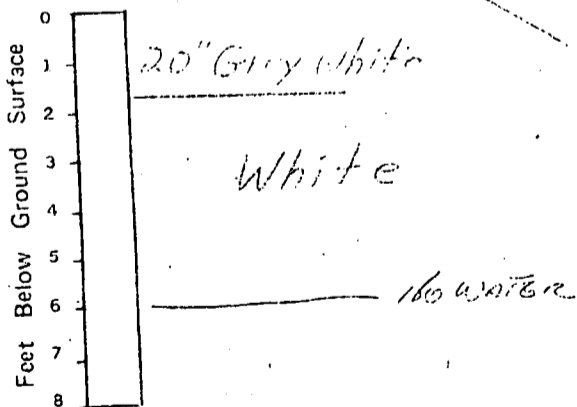 Feet Below Ground Surface
0
1
2
3
4
5
6
7
8
20" Grey White
White
No WATER